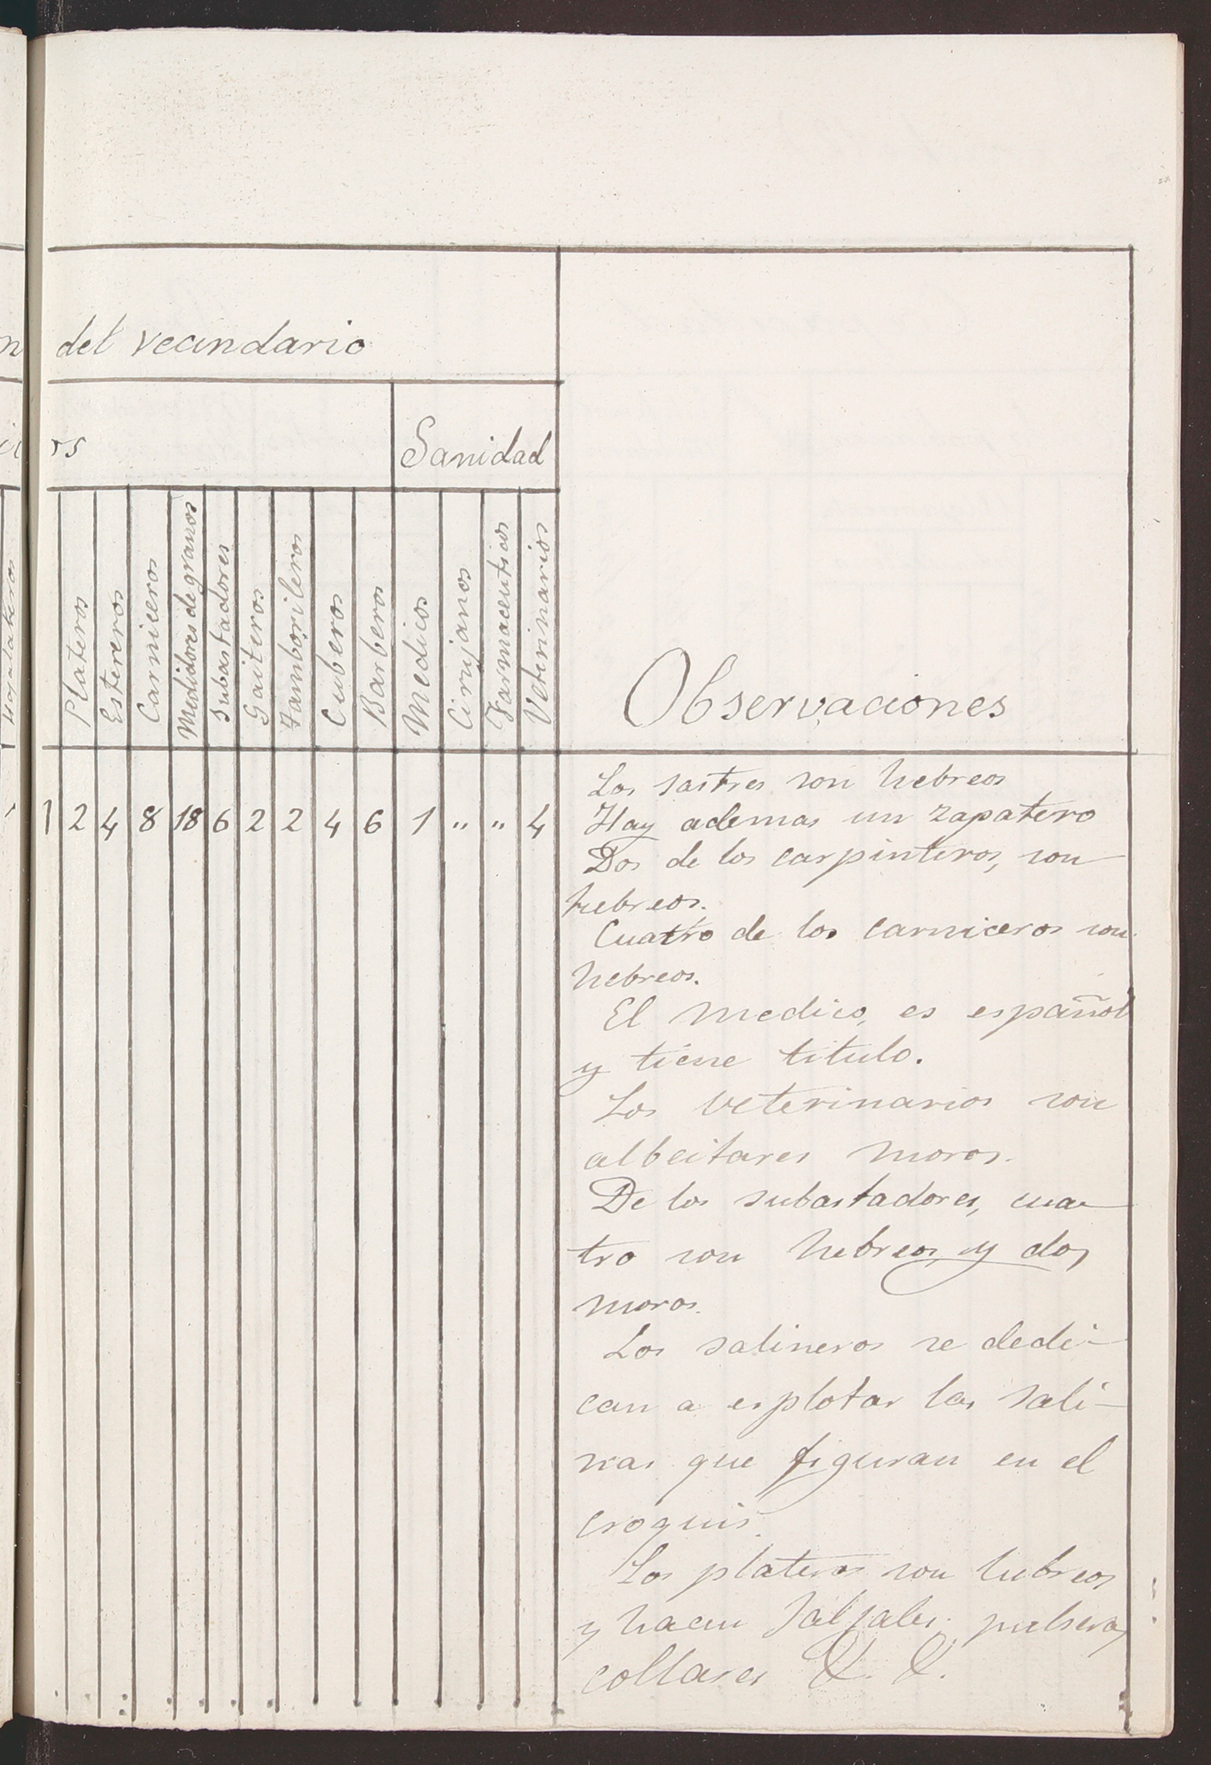 del vecindario
Sanidad
Plateros
Estereros
Carniceros
Medidores de granos
Subastadores
Gaiteros
Tamborileros
Cuberos
Barberos
Medicos
Cirujanos
Farmaceuticos
Veterinarios
Observaciones
1 2 4 8 18 6 2 2 4 6 1 " " 4
Los sastres son hebreos
Hay ademas un zapatero
Dos de los carpinteros, son
hebreos.
Cuatro de los carniceros son
hebreos.
El medico, es español
y tiene titulo.
Los veterinarios son
albeitares moros.
De los subastadores, cua-
tro son hebreos, y dos
moros.
Los salineros se dedi-
can a esplotar las sali-
nas que figuran en el
croquis.
Los plateros son hebreos
y hacen jaljales, pulseras
collares &. &.